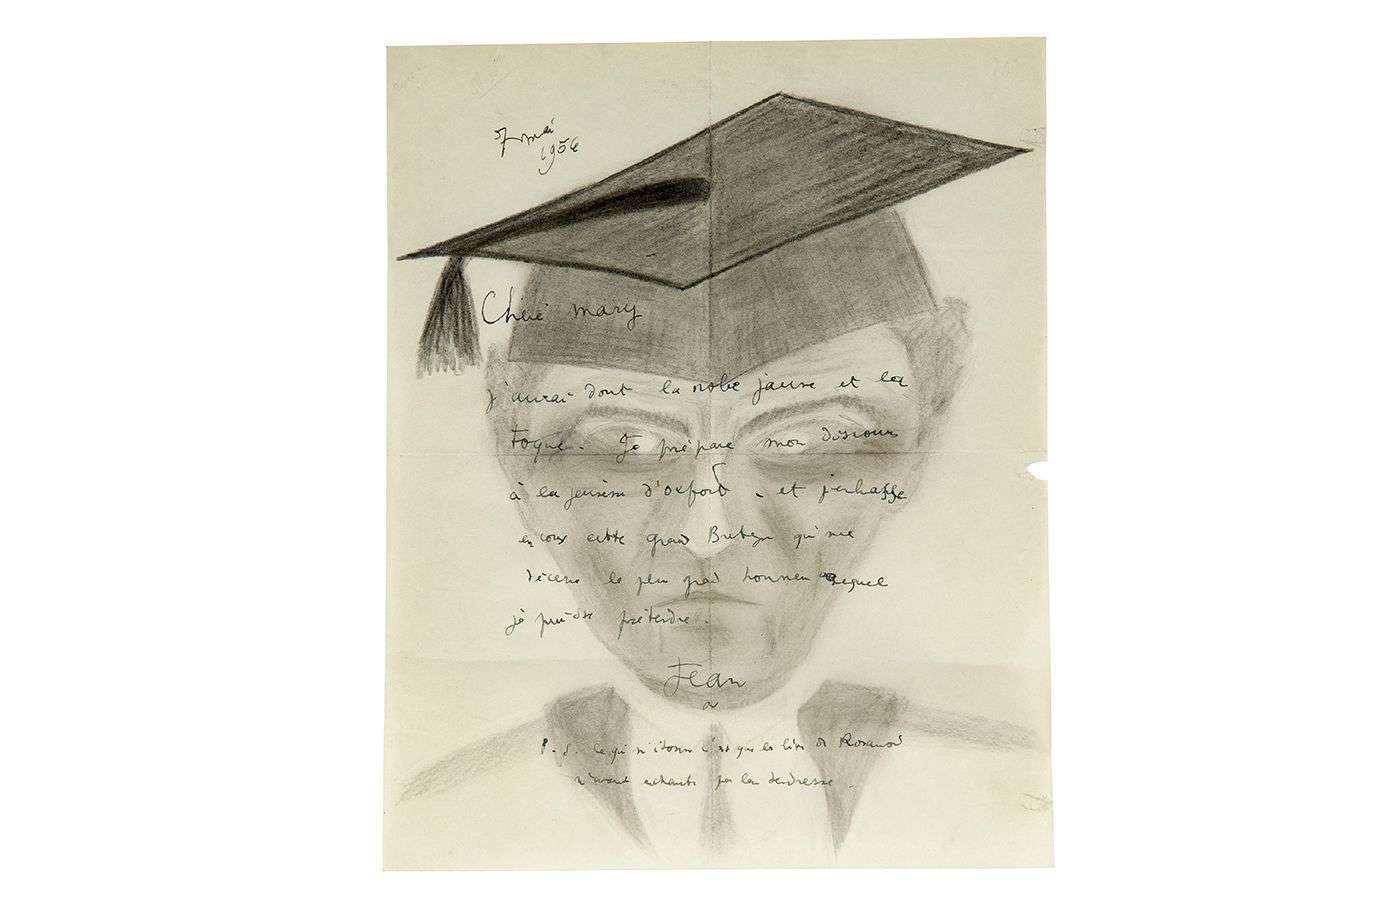 7 mai
1956
Chère mary
j'aurai dont la robe jaune et la
Toque. Je prépare mon discour
à la jeunesse d'Oxford - et
cette grand Bretagne qui me
décerne le plus grand honneur auquel
je puisse prétendre.
Jean
P.S. Ce qui m'étonne c'est que les de Rosamond
par la tendresse.